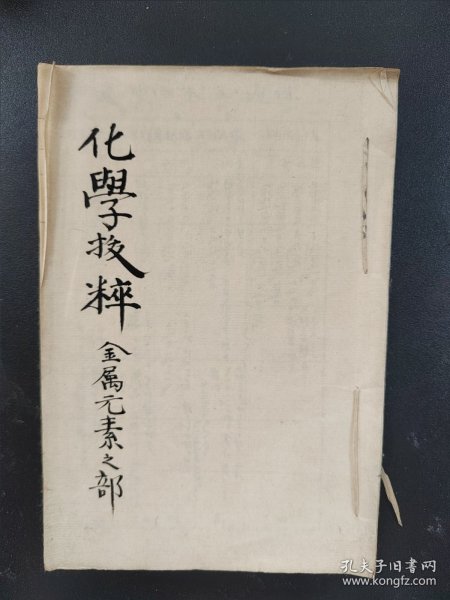 化學拔粹
金属元素之部
孔夫子旧书网
www.kongfz.com